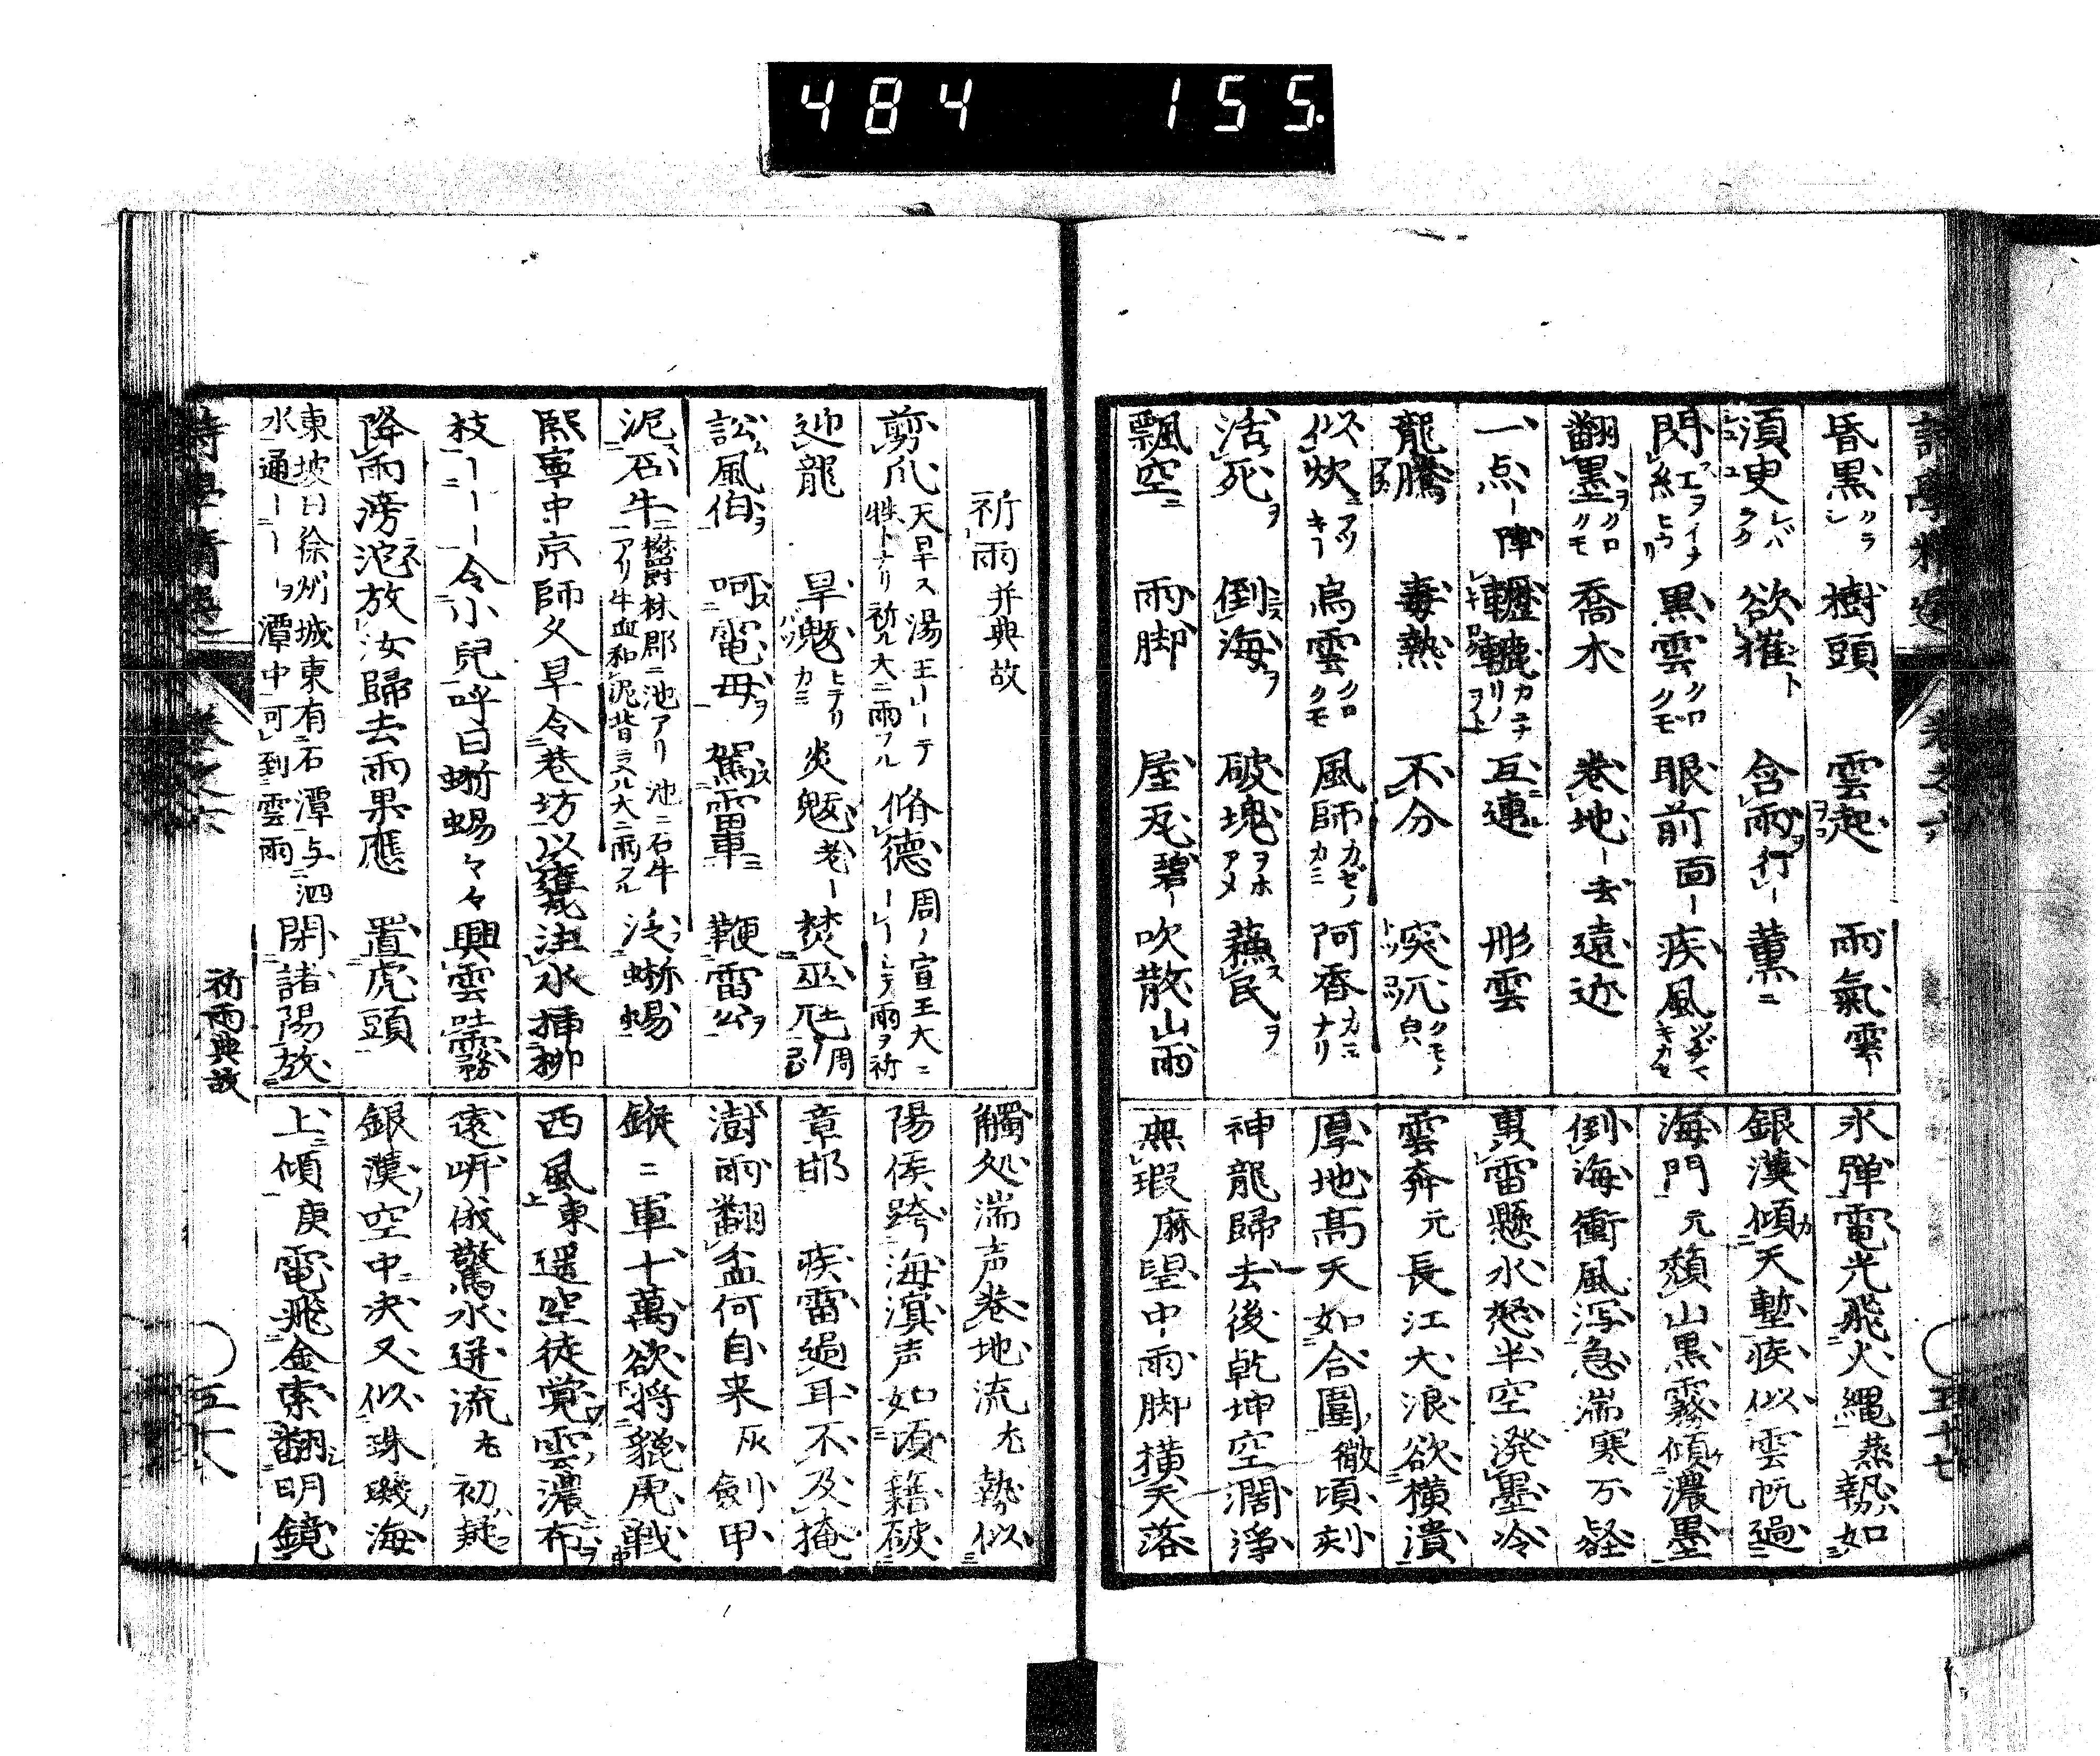 484 155.
卷之六
五十七
昏黒 クラ 樹頭 雲起 雨氣 雲ー
須臾 欲摧 含雨 行ー 薫
閃 黒雲 クロクモ 眼前 面ー 疾風
翻墨 クロクモ 喬木 巻地 ー去 遠近
一点 ー陣 轣轆 互連 形雲
龍騰 毒熱 不分 突兀
似炊 烏雲 クロクモ 風師 カゼノカミ 阿香 カミナリ
活死 倒海 破塊 ヲホアメ 蘓民
飄空 雨脚 屋瓦 碧ー 吹散 山雨
氷弾電光飛火縄 蒸 勢如
銀漢傾天塹疾似雲帆過
海門 元 頽山黒霧傾濃墨
倒海衝風泻急湍寒不経
裏雷懸水怒半空溌墨冷
雲奔 元 長江大浪欲横潰
厚地高天如合圍 徹 頃刻
神龍歸去後乾坤空濶浄
無瑕麻望中雨脚横天落
祈雨并典故
剪爪 天旱ス湯王ーーテ牲トナリ祈ル大ニ雨フル 脩德 周ノ宣王大ニーーシテ雨ヲ祈
迎龍 旱魃 ヒテリカミ 炎魃 老ー 焚巫尫
訟風伯 呵電母 駕雷車 鞭雷公
泥石牛 欝林郡ニ池アリ池ニ石牛アリ牛血和泥背ニヌル大ニ雨フル 泛蜥蜴
熙寧中京師久旱令巷坊以甕注水挿柳
枝ーーー令小兒呼曰蜥蜴々々興雲吐霧
降雨滂沱放汝歸去雨果應 置虎頭
東坡曰徐州城東有石潭与泗水通ーーー潭中可到雲雨 閉諸陽放
觸処湍声巻地流 尤 勢似
陽侯跨海滇声如項籍破
章邯 疾雷過耳不及掩
澍雨翻盆何自来 灰 劍甲
鏦二軍十萬欲将貔虎戦
西風 東 遥空徒覚雲濃布
遠听俄驚水迸流 尤 初疑
銀漢空中决又似珠璣海
上傾 庚 電飛金索翻明鏡
祈雨典故